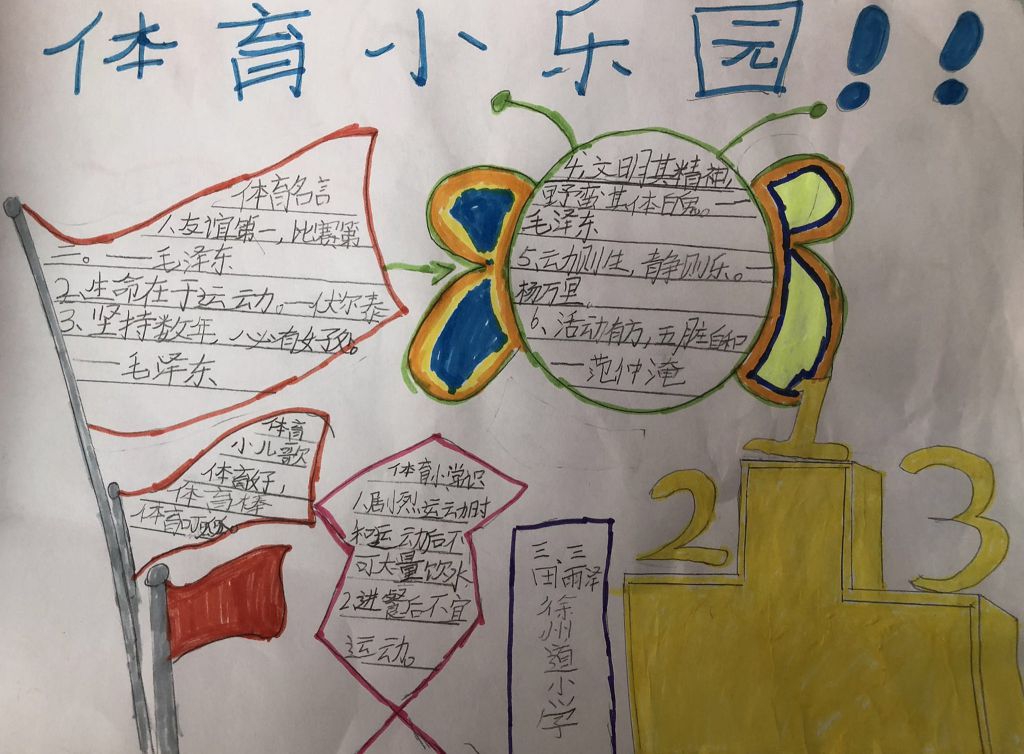 体育小乐园!!
体育名言
1、友谊第一,比赛第
二。——毛泽东
2、生命在于运动。—伏尔泰
3、坚持数年,必有好处。
——毛泽东
4、文明其精神,
野蛮其体白鬼。——
毛泽东
5、动则生,静则乐。—
杨万里
6、活动有方,五脏自和
——范仲淹
体育
小儿歌
体育好,
体育棒
体育
体育小常识
1、剧烈运动时
和运动后不
可大量饮水
2、进餐后不宜
运动。
2
1
3
三、三
田雨泽
徐州道小学